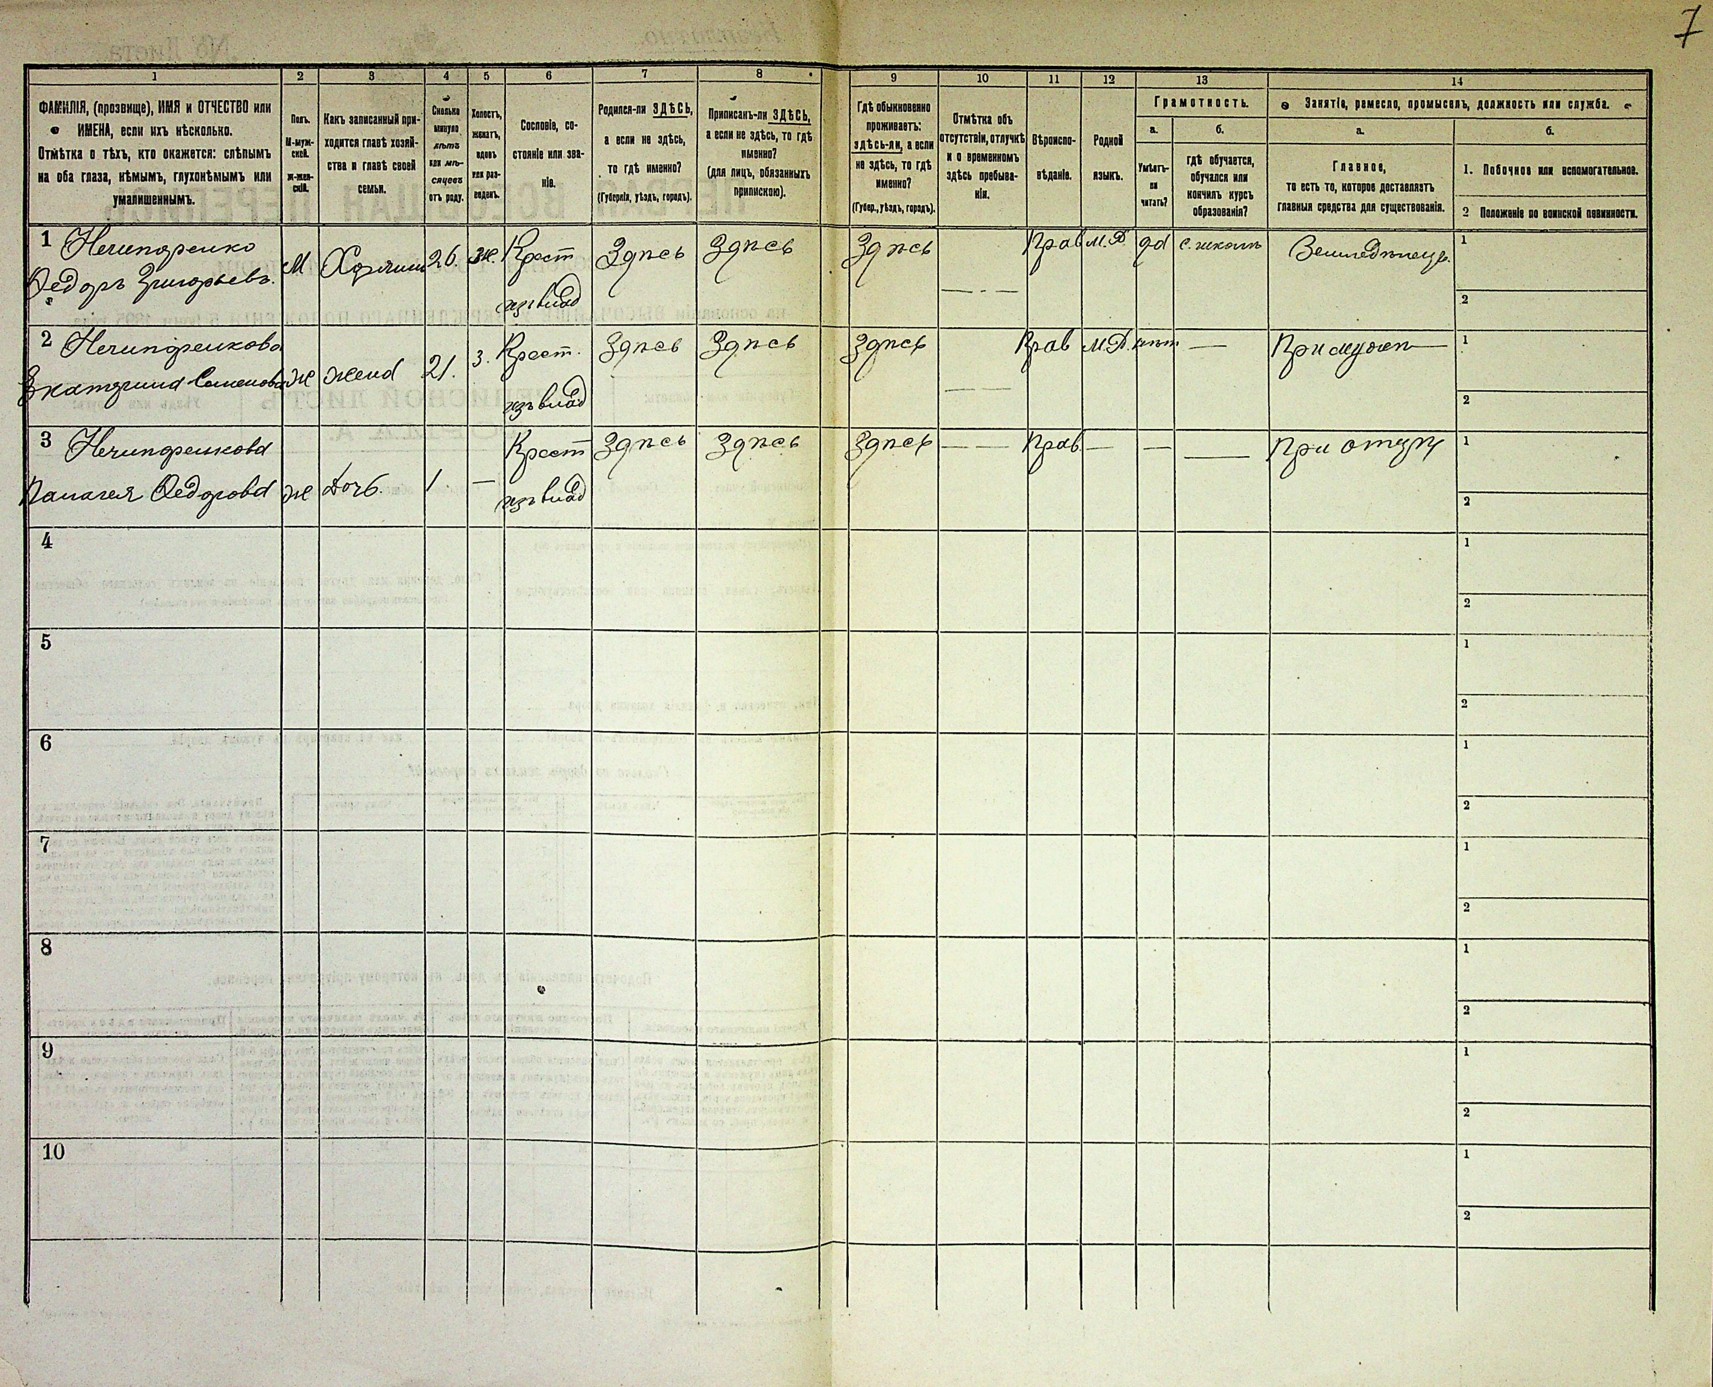 7
1 2 3 4 5 6 7 8 9 10 11 12 13 14
ФАМИЛІЯ, (прозвище), ИМЯ и ОТЧЕСТВО или
ИМЕНА, если ихъ нѣсколько.
Отмѣтка о тѣхъ, кто окажется: слѣпымъ
на оба глаза, нѣмымъ, глухонѣмымъ или
умалишеннымъ.
Полъ.
М-муж-
ской.
ж-жен-
скій.
Какъ записанный при-
ходится главѣ хозяй-
ства и главѣ своей
семьи.
Сколько
минуло
лѣтъ
или мѣ-
сяцевъ
отъ роду.
Холостъ,
женатъ,
вдовъ
или раз-
веденъ.
Сословіе, со-
стояніе или зва-
ніе.
Родился-ли ЗДѢСЬ,
а если не здѣсь,
то гдѣ именно?
(Губернія, уѣздъ, городъ).
Приписанъ-ли ЗДѢСЬ,
а если не здѣсь, то гдѣ
именно?
(для лицъ, обязанныхъ
припискою).
Гдѣ обыкновенно
проживаетъ:
здѣсь-ли, а если
не здѣсь, то гдѣ
именно?
(Губер., уѣздъ, городъ).
Отмѣтка объ
отсутствіи, отлучкѣ
и о временномъ
здѣсь пребыва-
ніи.
Вѣроиспо-
вѣданіе.
Родной
языкъ.
Грамотность.
а.
Умѣетъ-
ли
читать?
б.
гдѣ обучается,
обучался или
кончилъ курсъ
образованія?
Занятіе, ремесло, промыселъ, должность или служба.
а.
Главное,
то есть то, которое доставляетъ
главныя средства для существованія.
б.
1. Побочное или вспомогательное.
2 Положеніе по воинской повинности.
1 Нечипоренко
Федоръ Григорьевъ. М Хозяинъ 26. ж. Крест Здѣсь Здѣсь Здѣсь — Прав М.Р. да с. школѣ Земледѣлецъ. 1
из влад 2
2 Нечипоренкова
Екатерина Семенова ж жена 21. з. Крест. Здѣсь Здѣсь Здѣсь — Прав М.Р. нѣтъ — При мужѣ 1
из влад 2
3 Нечипоренкова
Палагея Федорова ж Дочь. 1 — Крест Здѣсь Здѣсь Здѣсь — Прав — — — При отцѣ 1
из влад 2
4 1
2
5 1
2
6 1
2
7 1
2
8 1
2
9 1
2
10 1
2